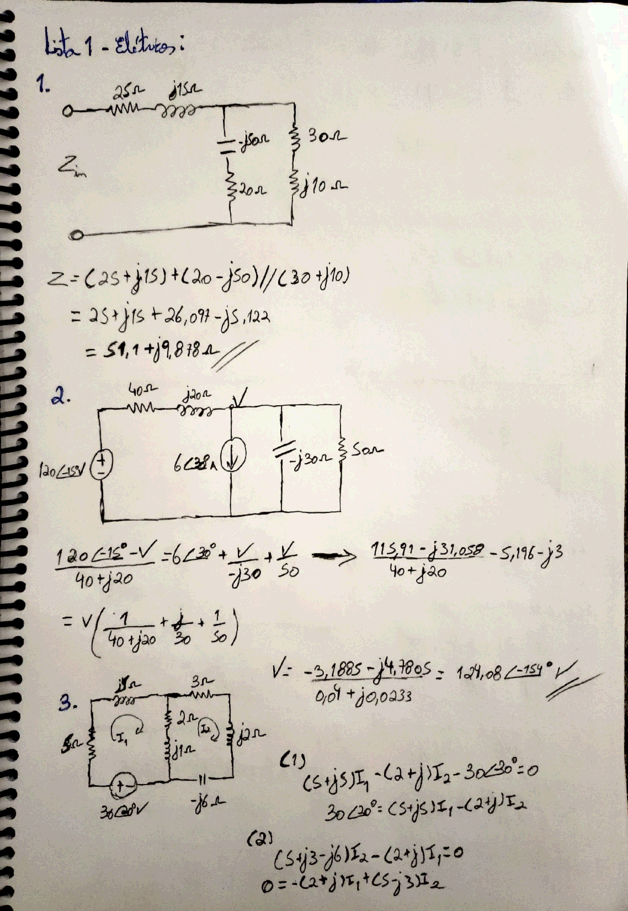 Lista 1 - Elétricos:
1.
25Ω j15Ω
-j50Ω 30Ω
Zin
20Ω j10Ω
Z = (25+j15)+(20-j50)//(30+j10)
= 25+j15+26,097-j5,122
= 51,1+j9,878Ω
2.
40Ω j20Ω V
120∠-15V 6∠30A -j30Ω 50Ω
120∠-15°-V / 40+j20 = 6∠30° + V / -j30 + V / 50 → 115,91-j31,058 / 40+j20 - 5,196-j3
= V(1 / 40+j20 + j / 30 + 1 / 50)
V = -3,1885-j4,7805 / 0,04+j0,0233 = 124,08∠-154° V
3.
3Ω
2Ω
I1 I2 j2Ω
j1Ω
-j6Ω
(1)
(5+j5)I1-(2+j)I2-30∠30°=0
30∠20°=(5+j5)I1-(2+j)I2
(2)
(5+j3-j6)I2-(2+j)I1=0
0=-(2+j)I1+(5-j3)I2